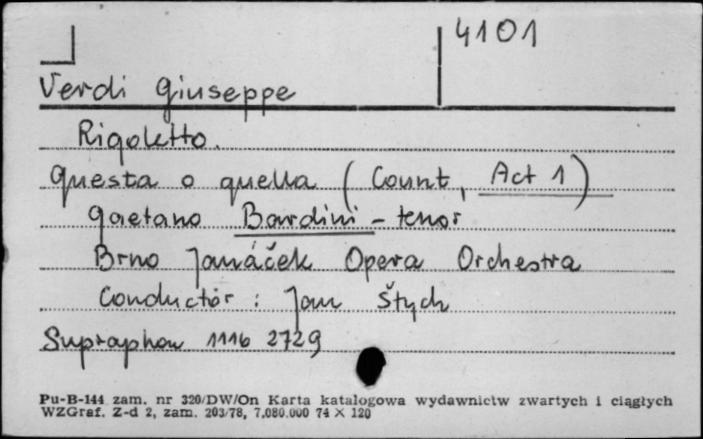 4101
Verdi Giuseppe
Rigoletto.
Questa o quella (Count, Act 1)
Gaetano Bardini - tenor
Brno Janáček Opera Orchestra
Conductor : Jan Štych
Supraphon 1116 2729
Pu-B-144 zam. nr 320/DW/On Karta katalogowa wydawnictw zwartych i ciągłych
WZGraf. Z-d 2, zam. 203/78, 7.080.000 74 × 120